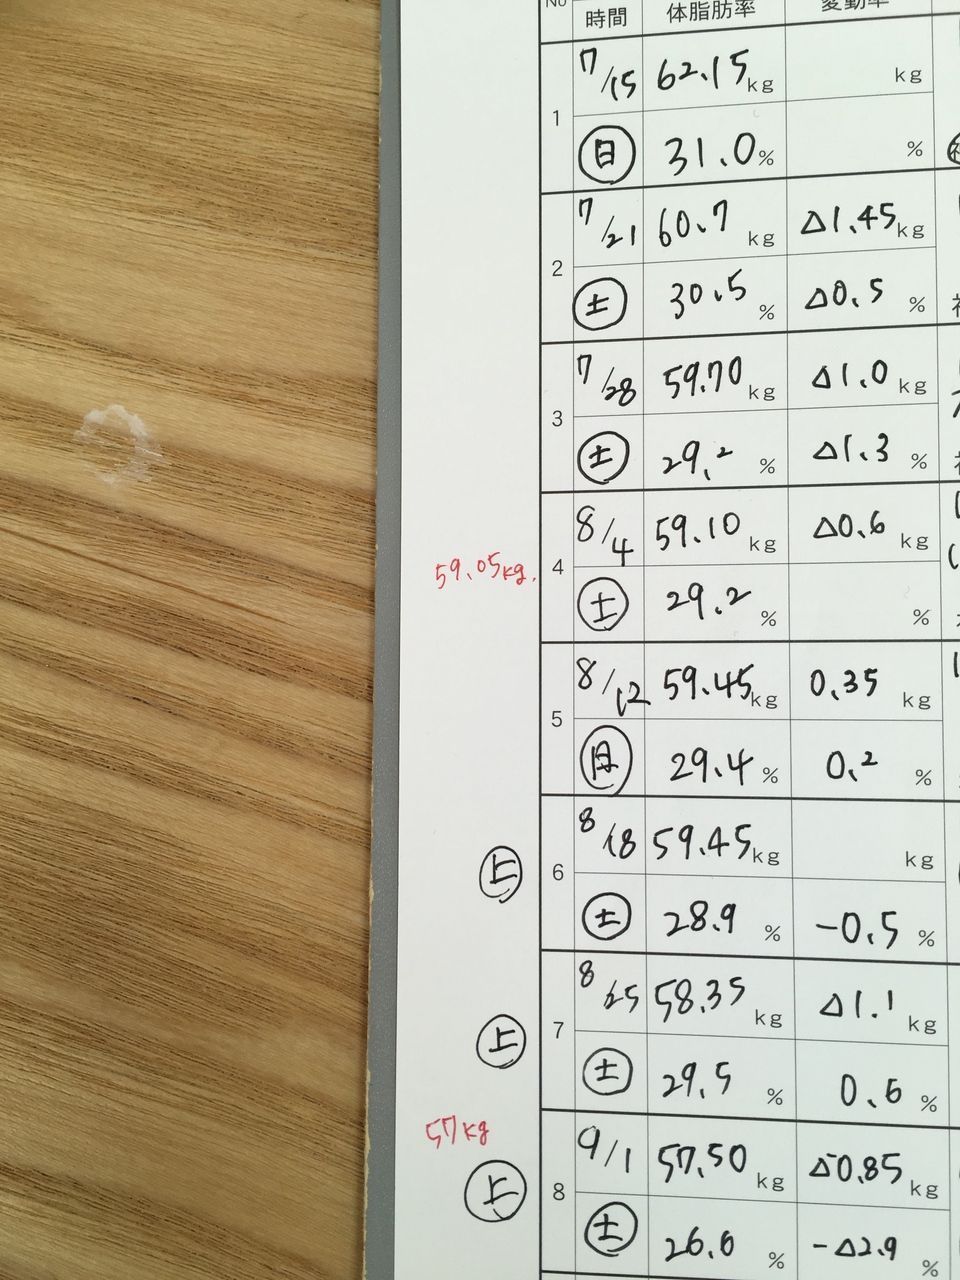 No 時間 体脂肪率 変動率
7/15 62.15kg kg
1
日 31.0% %
7/21 60.7 kg △1.45kg
2
土 30.5 % △0.5 %
7/28 59.70 kg △1.0 kg
3
土 29.2 % △1.3 %
8/4 59.10 kg △0.6 kg
59.05kg. 4
土 29.2 % %
8/12 59.45kg 0.35 kg
5
日 29.4 % 0.2 %
8/18 59.45kg kg
上 6
土 28.9 % -0.5 %
8/25 58.35 kg △1.1 kg
上 7
土 29.5 % 0.6 %
57kg
9/1 57.50 kg △0.85 kg
上 8
土 26.6 % -△2.9 %